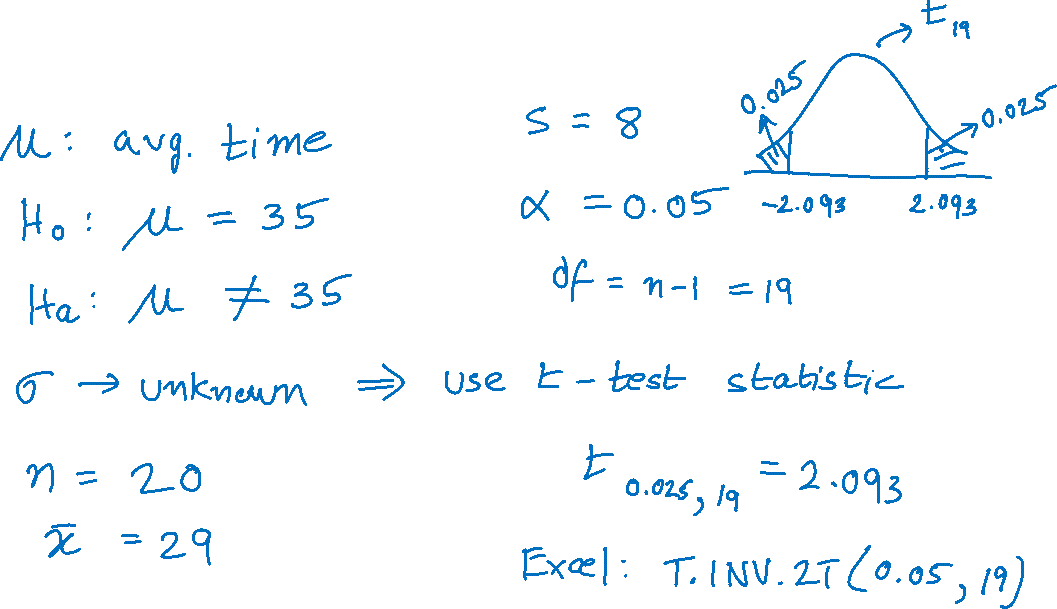 μ: avg. time
H₀: μ = 35
Ha: μ ≠ 35
σ → unknown ⇒ use t-test statistic
n = 20
x̄ = 29
s = 8
α = 0.05
df = n-1 = 19
t₁₉
0.025
0.025
-2.093 2.093
t 0.025, 19 = 2.093
Excel: T.INV.2T(0.05, 19)